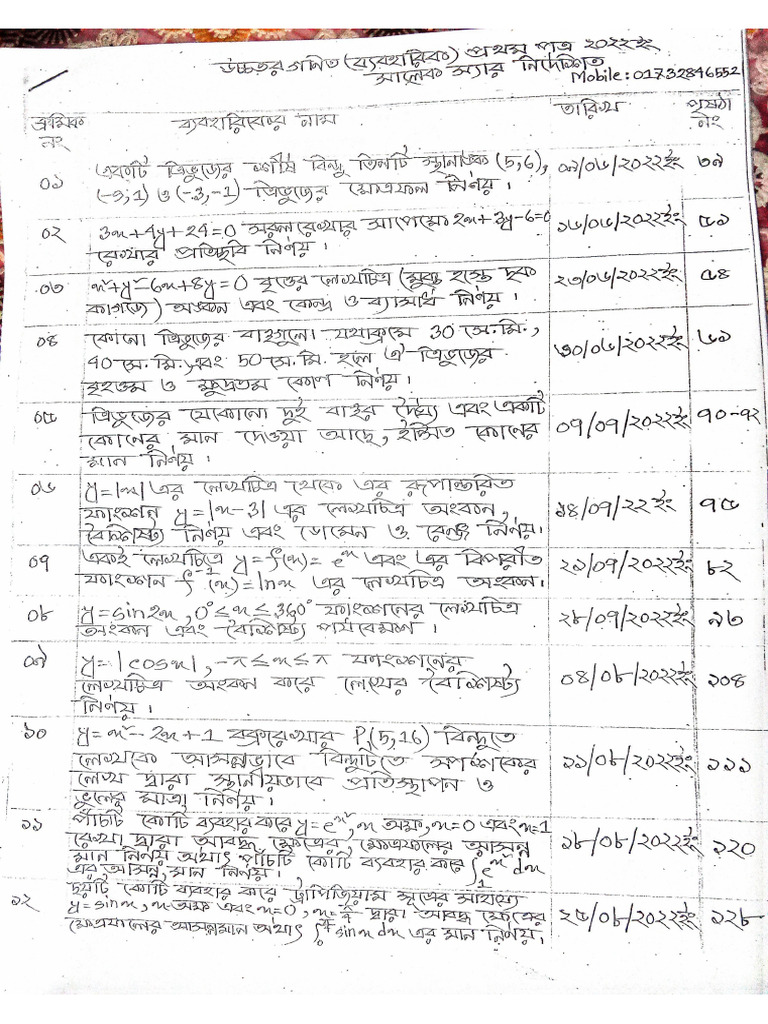 উচ্চতর গণিত (ব্যবহারিক) প্রথম পত্র ২০২২ইং
মালেক স্যার নির্দেশিত
Mobile: 01732846552
ক্রমিক নং ব্যবহারিকের নাম তারিখ পৃষ্ঠা নং
০১ একটি ত্রিভুজের শীর্ষ বিন্দু তিনটি স্থানাঙ্ক (5,6), ০৯/০৬/২০২২ইং ৩৯
(-9,1) ও (-3,-1) ত্রিভুজের ক্ষেত্রফল নির্ণয়।
০২ 3x+4y+24=0 সরলরেখার সাপেক্ষে 2x+3y-6=0 ১৬/০৬/২০২২ইং ৫১
রেখার প্রতিচ্ছবি নির্ণয়।
০৩ x²+y²-6x+8y=0 বৃত্তের লেখচিত্র (মুক্ত হস্তে ছক ২৩/০৬/২০২২ইং ৫৪
কাগজে) অংকন এবং কেন্দ্র ও ব্যাসার্ধ নির্ণয়।
০৪ কোনো ত্রিভুজের বাহুগুলো যথাক্রমে 30 সে.মি., ৩০/০৬/২০২২ইং ৬১
40 সে.মি. এবং 50 সে.মি. হলে ঐ ত্রিভুজের
বৃহত্তম ও ক্ষুদ্রতম কোণ নির্ণয়।
০৫ ত্রিভুজের যেকোনো দুই বাহুর দৈর্ঘ্য এবং একটি ০৭/০৭/২০২২ইং ৭০-৭২
কোনের মান দেওয়া আছে, ইপ্সিত কোনের
মান নির্ণয়।
০৬ y=|x| এর লেখচিত্র থেকে এর রূপান্তরিত ১৪/০৭/২২ইং ৭৫
ফাংশন y=|x-3| এর লেখচিত্র অংকন,
বৈশিষ্ট্য নির্ণয় এবং ডোমেন ও রেঞ্জ নির্ণয়।
০৭ একই লেখচিত্রে y=f(x)=eˣ এবং এর বিপরীত ২১/০৭/২০২২ইং ৮২
ফাংশন f⁻¹(x)=lnx এর লেখচিত্র অংকন।
০৮ y=sin2x, 0°≤x≤360° ফাংশনের লেখচিত্র ২৮/০৭/২০২২ইং ৯৩
অংকন এবং বৈশিষ্ট্য পর্যবেক্ষণ।
০৯ y=|cosx|, -π≤x≤π ফাংশনের ০৪/০৮/২০২২ইং ১০৪
লেখচিত্র অংকন করে লেখের বৈশিষ্ট্য
নির্ণয়।
১০ y=x²-2x+1 বক্ররেখার P(5,16) বিন্দুতে ১১/০৮/২০২২ইং ১১১
লেখকে আসন্নভাবে বিন্দুটিতে স্পর্শকের
লেখ দ্বারা স্থানীয়ভাবে প্রতিস্থাপন ও
ভুলের মাত্রা নির্ণয়।
১১ পাঁচটি কোটি ব্যবহার করে y=eˣ², x অক্ষ, x=0 এবং x=1 ১৮/০৮/২০২২ইং ১২০
রেখা দ্বারা আবদ্ধ ক্ষেত্রের ক্ষেত্রফলের আসন্ন
মান নির্ণয় অর্থাৎ পাঁচটি কোটি ব্যবহার করে ∫₁ eˣ² dx
এর আসন্ন মান নির্ণয়।
১২ ছয়টি কোটি ব্যবহার করে ট্রাপিজিয়াম সূত্রের সাহায্যে ২৫/০৮/২০২২ইং ১২৮
y=sinx, x-অক্ষ এবং x=0, x=π/4 দ্বারা আবদ্ধ ক্ষেত্রের
ক্ষেত্রফলের আসন্নমান অর্থাৎ ∫₀ sinx dx এর মান নির্ণয়।